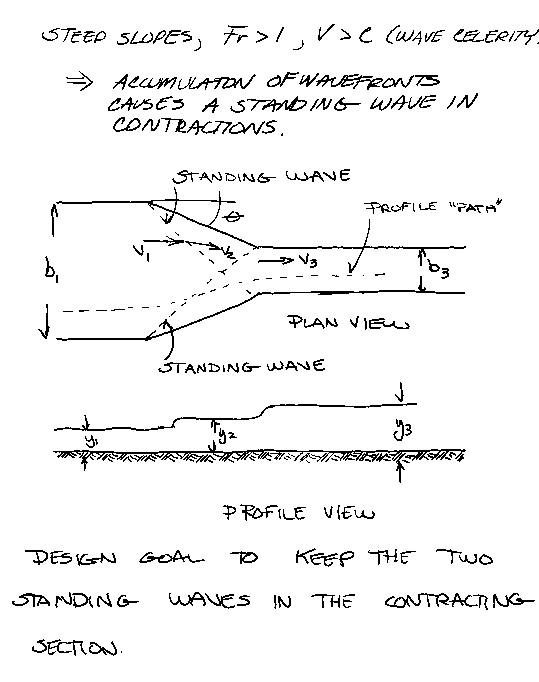 STEEP SLOPES, Fr > 1, V > C (WAVE CELERITY.
⇒ ACCUMULATON OF WAVEFRONTS
CAUSES A STANDING WAVE IN
CONTRACTIONS.
STANDING WAVE
θ
PROFILE "PATH"
V1
V2
V3
b1
b3
PLAN VIEW
STANDING WAVE
y1
y2
y3
PROFILE VIEW
DESIGN GOAL TO KEEP THE TWO
STANDING WAVES IN THE CONTRACTING
SECTION.